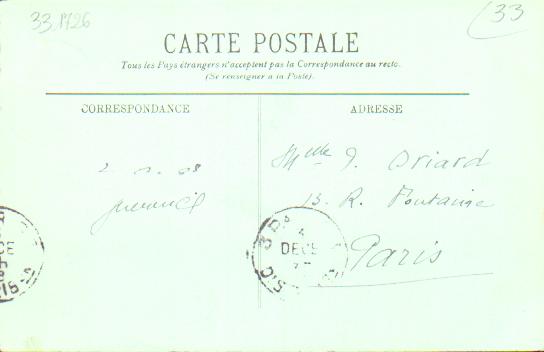 33.1726
33
CARTE POSTALE
Tous les Pays étrangers n'acceptent pas la Correspondance au recto.
(Se renseigner à la Poste).
CORRESPONDANCE
ADRESSE
Mlle J. Oriard
13. R. Fontaine
Paris
DECE